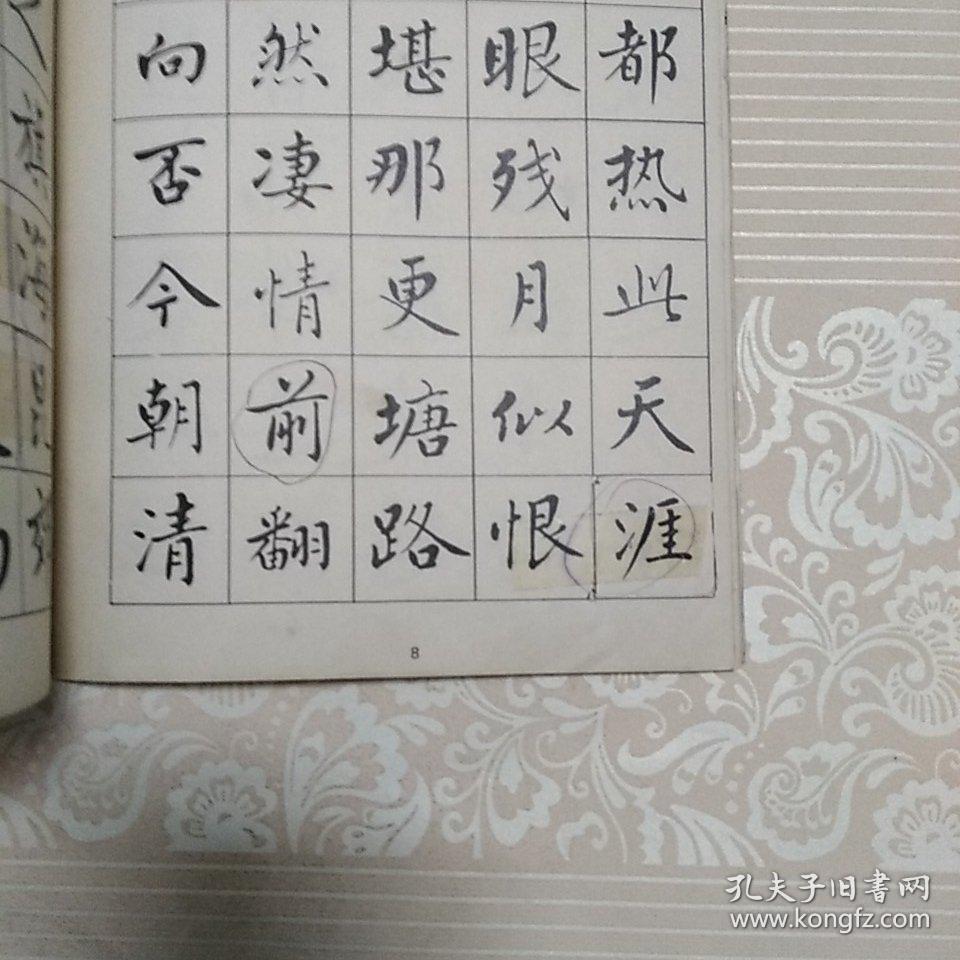 都热此天涯
眼残月似恨
堪那更塘路
然凄情前翻
向否今朝清
8
孔夫子旧書网
www.kongfz.com